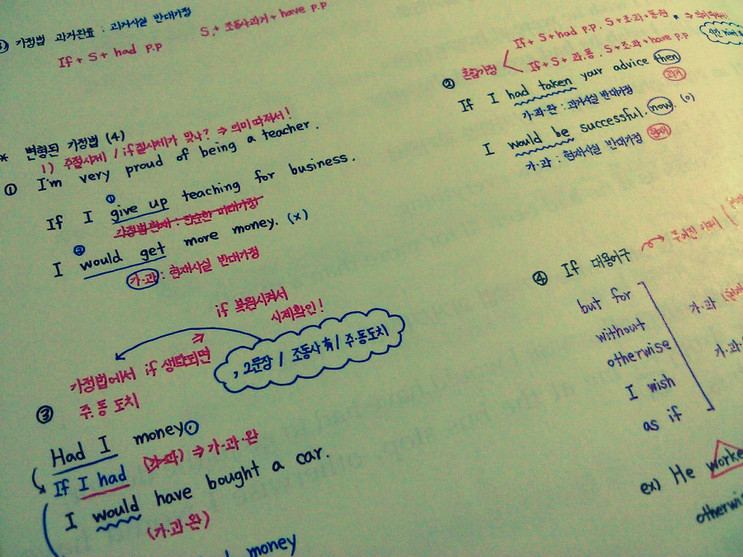 가정법 과거완료 : 과거사실 반대가정
If + S + had p.p S + 조동사과거 + have p.p
* 변형된 가정법 (4)
1) 주절시제 / if절시제가 맞나? ⇒ 의미따져서!
① I'm very proud of being a teacher.
①
If I give up teaching for business.
가정법현재 : 단순한 미래가정
②
I would get more money. (x)
가·과 : 현재사실 반대가정
if 복원시켜서
시제확인!
, 2문장 / 조동사 有 / 주·동도치
가정법에서 if 생략되면
주·동 도치
③ Had I money,
If I had (가·과) ⇒ 가·과·완
I would have bought a car.
(가·과·완)
money
② 혼합가정
If + S + had p.p. S + 조·과 + 동원
If + S + 과·동. S + 조·과 + have p.p
If I had taken your advice then
가·과·완 : 과거사실 반대가정 과거
I would be successful. now. (o)
가·과 : 현재사실 반대가정 현재
④ If 대용어구
but for
without
otherwise
I wish
as if
가·과
가·과·
ex) He worke
otherwis